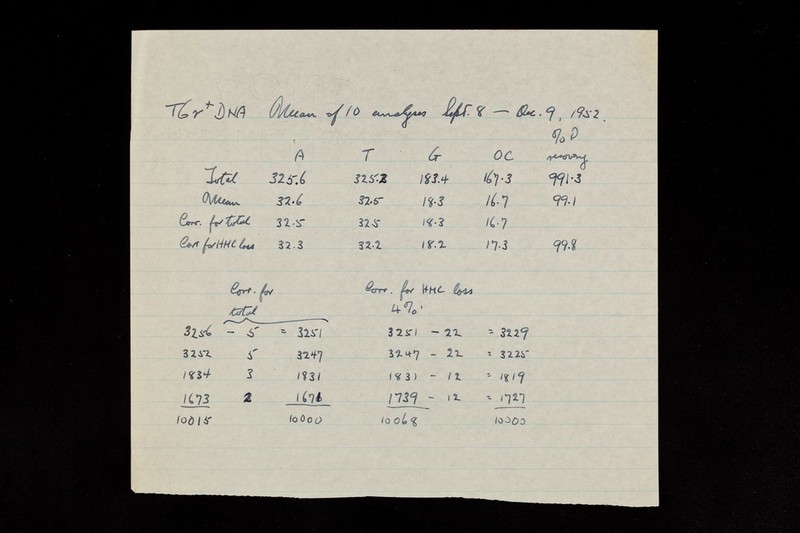 T6r+ DNA Mean of 10 analyses Sept. 8 — Dec. 9, 1952.
% D
A T G OC recovery
Total 325.6 325.2 183.4 167.3 991.3
Mean 32.6 32.5 18.3 16.7 99.1
Corr. for total 32.5 32.5 18.3 16.7
Corr for HMC loss 32.3 32.2 18.2 17.3 99.8
Corr. for Corr. for HMC loss
total 4%
3256 – 5 = 3251 3251 – 22 = 3229
3252 5 3247 3247 – 22 = 3225
1834 3 1831 1831 – 12 = 1819
1673 2 1671 1739 – 12 = 1727
10015 10000 10068 10000